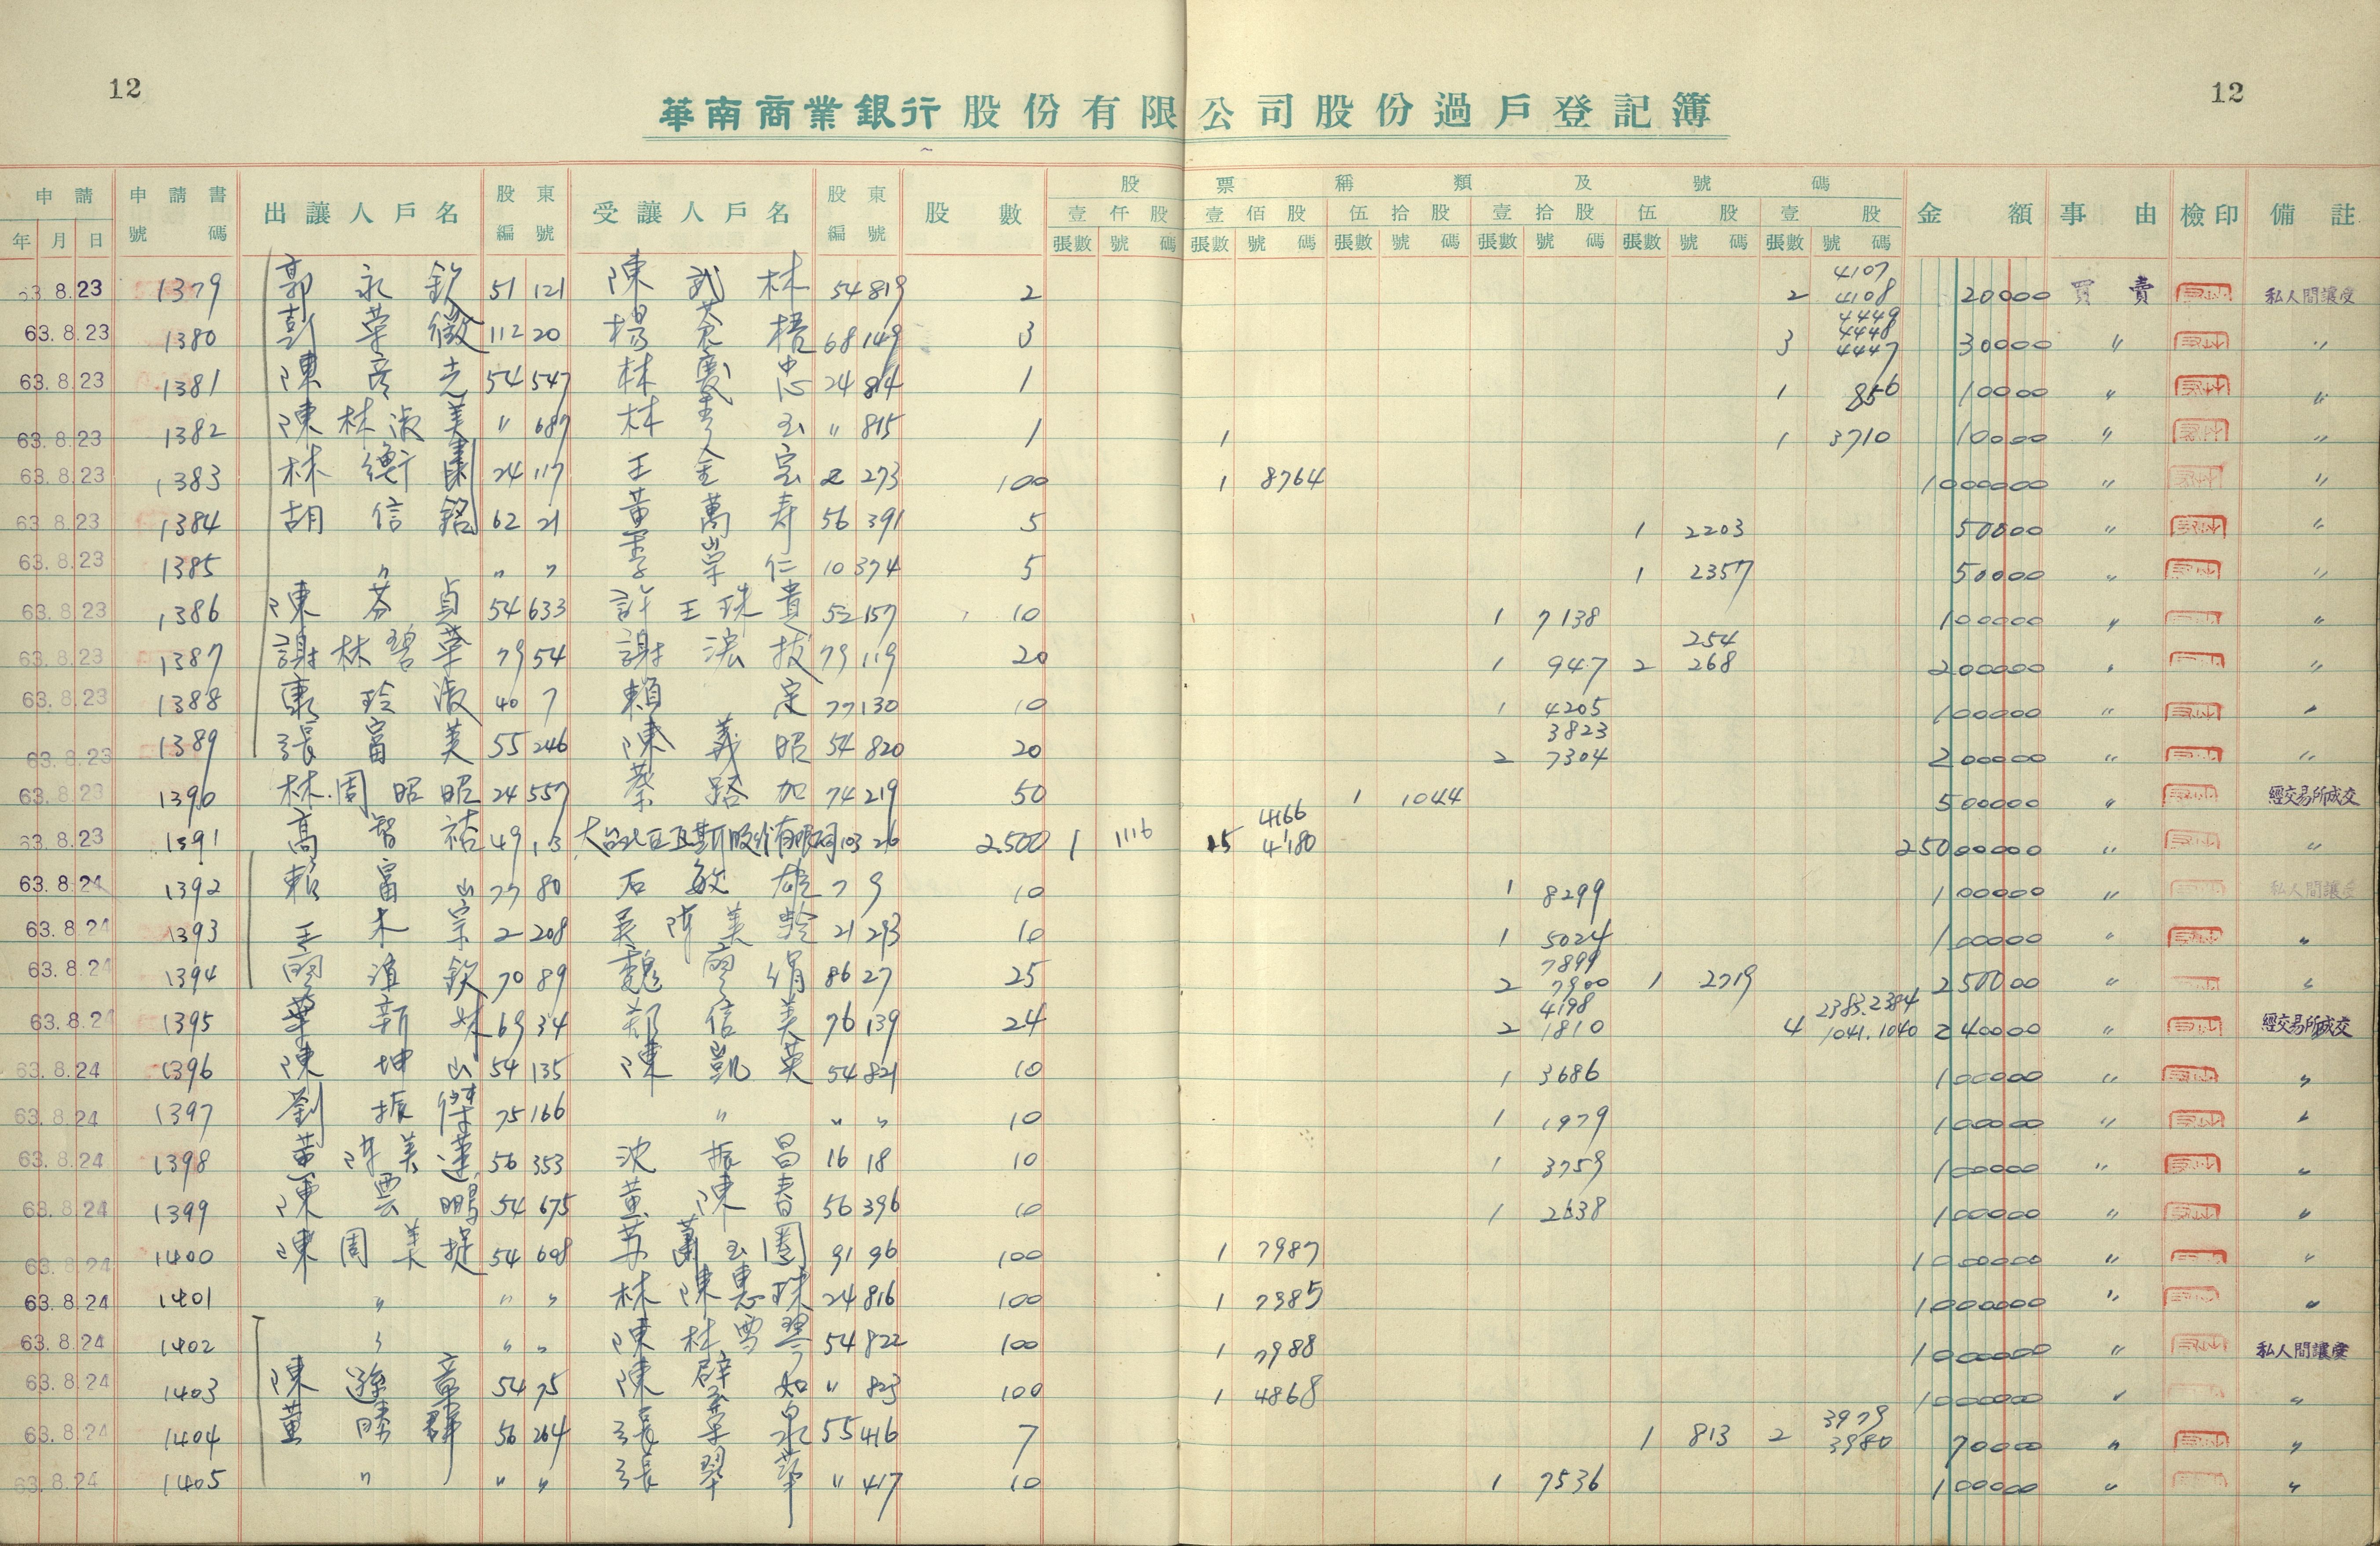 12
12
華南商業銀行股份有限公司股份過戶登記簿
申請 申請書 出讓人戶名 股東 受讓人戶名 股東 股數 股票稱類及號碼 金額 事由 檢印 備註
年 月 日 號碼 編號 編號 壹仟股 壹佰股 伍拾股 壹拾股 伍股 壹股
張數 號碼 張數 號碼 張數 號碼 張數 號碼 張數 號碼 張數 號碼
63.8.23 1379 郭永欽 51 121 陳武林 54 819 2 2 4107 4108 20000 買賣 私人間讓受
63.8.23 1380 彭榮徵 112 20 楊 梧 68 149 3 3 4449 4448 4447 30000 〃 〃
63.8.23 1381 陳彥光 54 547 林慶忠 24 814 1 1 856 10000 〃 〃
63.8.23 1382 陳林淑美 〃 687 林 玉 〃 815 1 1 1 3710 10000 〃 〃
63.8.23 1383 林衡肅 24 117 王金 2 273 100 1 8764 1000000 〃 〃
63.8.23 1384 胡信銘 62 21 黃萬寿 56 391 5 1 2203 50000 〃 〃
63.8.23 1385 〃 〃 〃 李崇仁 10 374 5 1 2357 50000 〃 〃
63.8.23 1386 陳芬貞 54 633 許王珠貴 52 157 10 1 7138 100000 〃 〃
63.8.23 1387 謝林碧華 79 54 謝 拔 79 119 20 1 947 2 254 268 200000 〃 〃
63.8.23 1388 康玲淑 40 7 賴定 77 130 10 1 4205 100000 〃 〃
63.8.23 1389 張富美 55 246 陳義昭 54 820 20 2 3823 7304 200000 〃 〃
63.8.23 1390 林周昭昭 24 557 蔡路加 74 219 50 1 1044 500000 〃 經交易所成交
63.8.23 1391 高智祐 49 13 大台北瓦斯股份有限公司 103 26 2500 1 1116 15 4166 4180 25000000 〃 〃
63.8.24 1392 賴富山 77 80 石敏雄 7 9 10 1 8299 100000 〃 私人間讓受
63.8.24 1393 王木宗 2 208 吳陳美齡 21 293 10 1 5024 100000 〃 〃
63.8.24 1394 欽 70 89 魏廖絹 86 27 25 2 7899 7900 1 2719 250000 〃 〃
63.8.24 1395 葉新妹 69 34 鄭信美 76 139 24 2 4198 1810 4 2383.2384 1041.1040 240000 〃 經交易所成交
63.8.24 1396 陳坤山 54 135 陳凱英 54 821 10 1 3686 100000 〃 〃
63.8.24 1397 劉振傑 75 166 〃 〃 〃 10 1 1979 100000 〃 〃
63.8.24 1398 黃陳美蓮 56 353 沈振昌 16 18 10 1 3759 100000 〃 〃
63.8.24 1399 陳雲鵬 54 675 黃陳春 56 396 10 1 2638 100000 〃 〃
63.8.24 1400 陳周美提 54 608 蕭玉園 91 96 100 1 7987 1000000 〃 〃
63.8.24 1401 〃 〃 〃 林陳惠珠 24 816 100 1 7385 1000000 〃 〃
63.8.24 1402 〃 〃 〃 陳林雪琴 54 822 100 1 7988 1000000 〃 私人間讓受
63.8.24 1403 陳遜章 54 75 陳 如 〃 823 100 1 4868 1000000 〃 〃
63.8.24 1404 黃勝群 56 264 張榮泉 55 416 7 1 813 2 3979 3980 70000 〃 〃
63.8.24 1405 〃 〃 〃 張翠華 〃 417 10 1 7536 100000 〃 〃